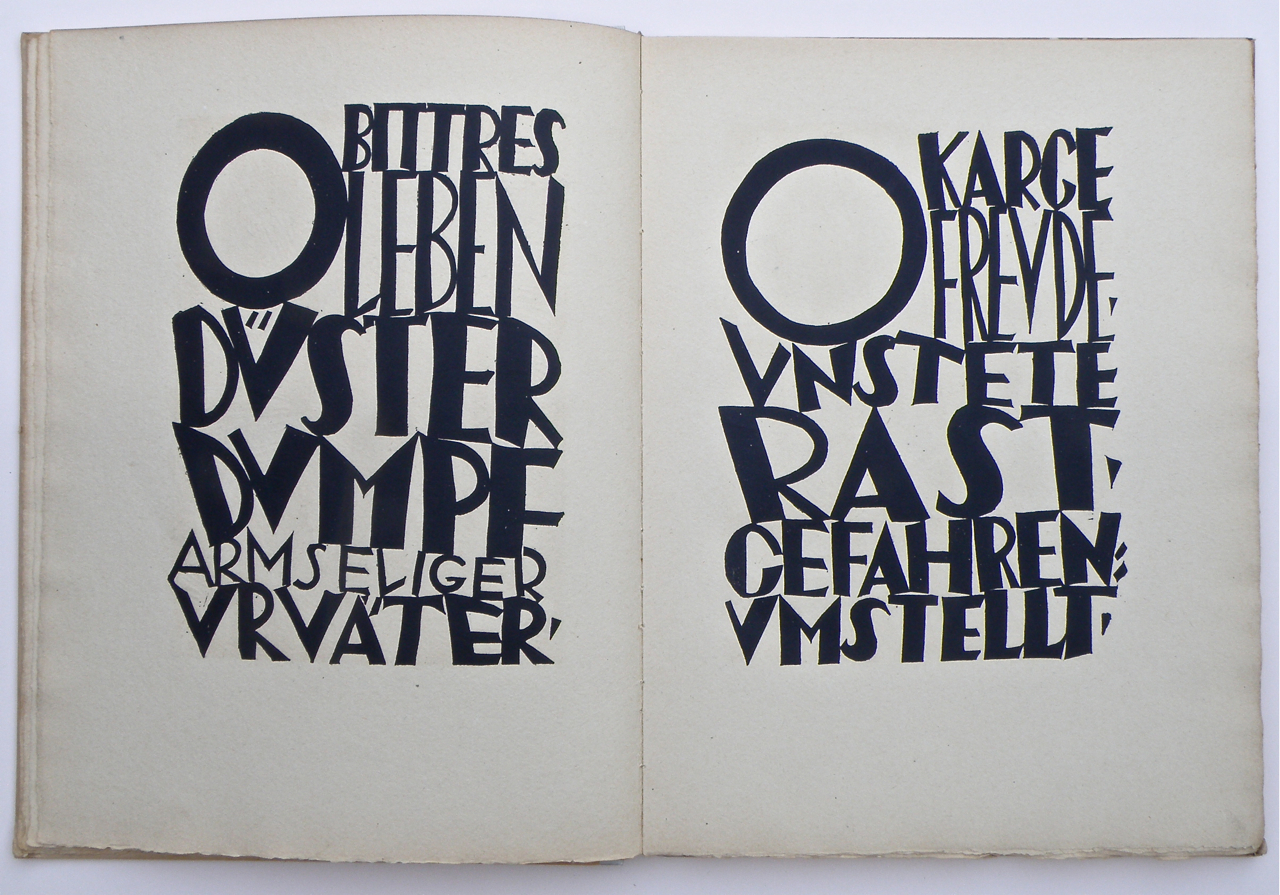 O BITTRES
LEBEN
DÜSTER
DVMPF
ARMSELIGER
VRVÄTER,
O KARGE
FREVDE,
VNSTETE
RAST,
GEFAHREN=
VMSTELLT,